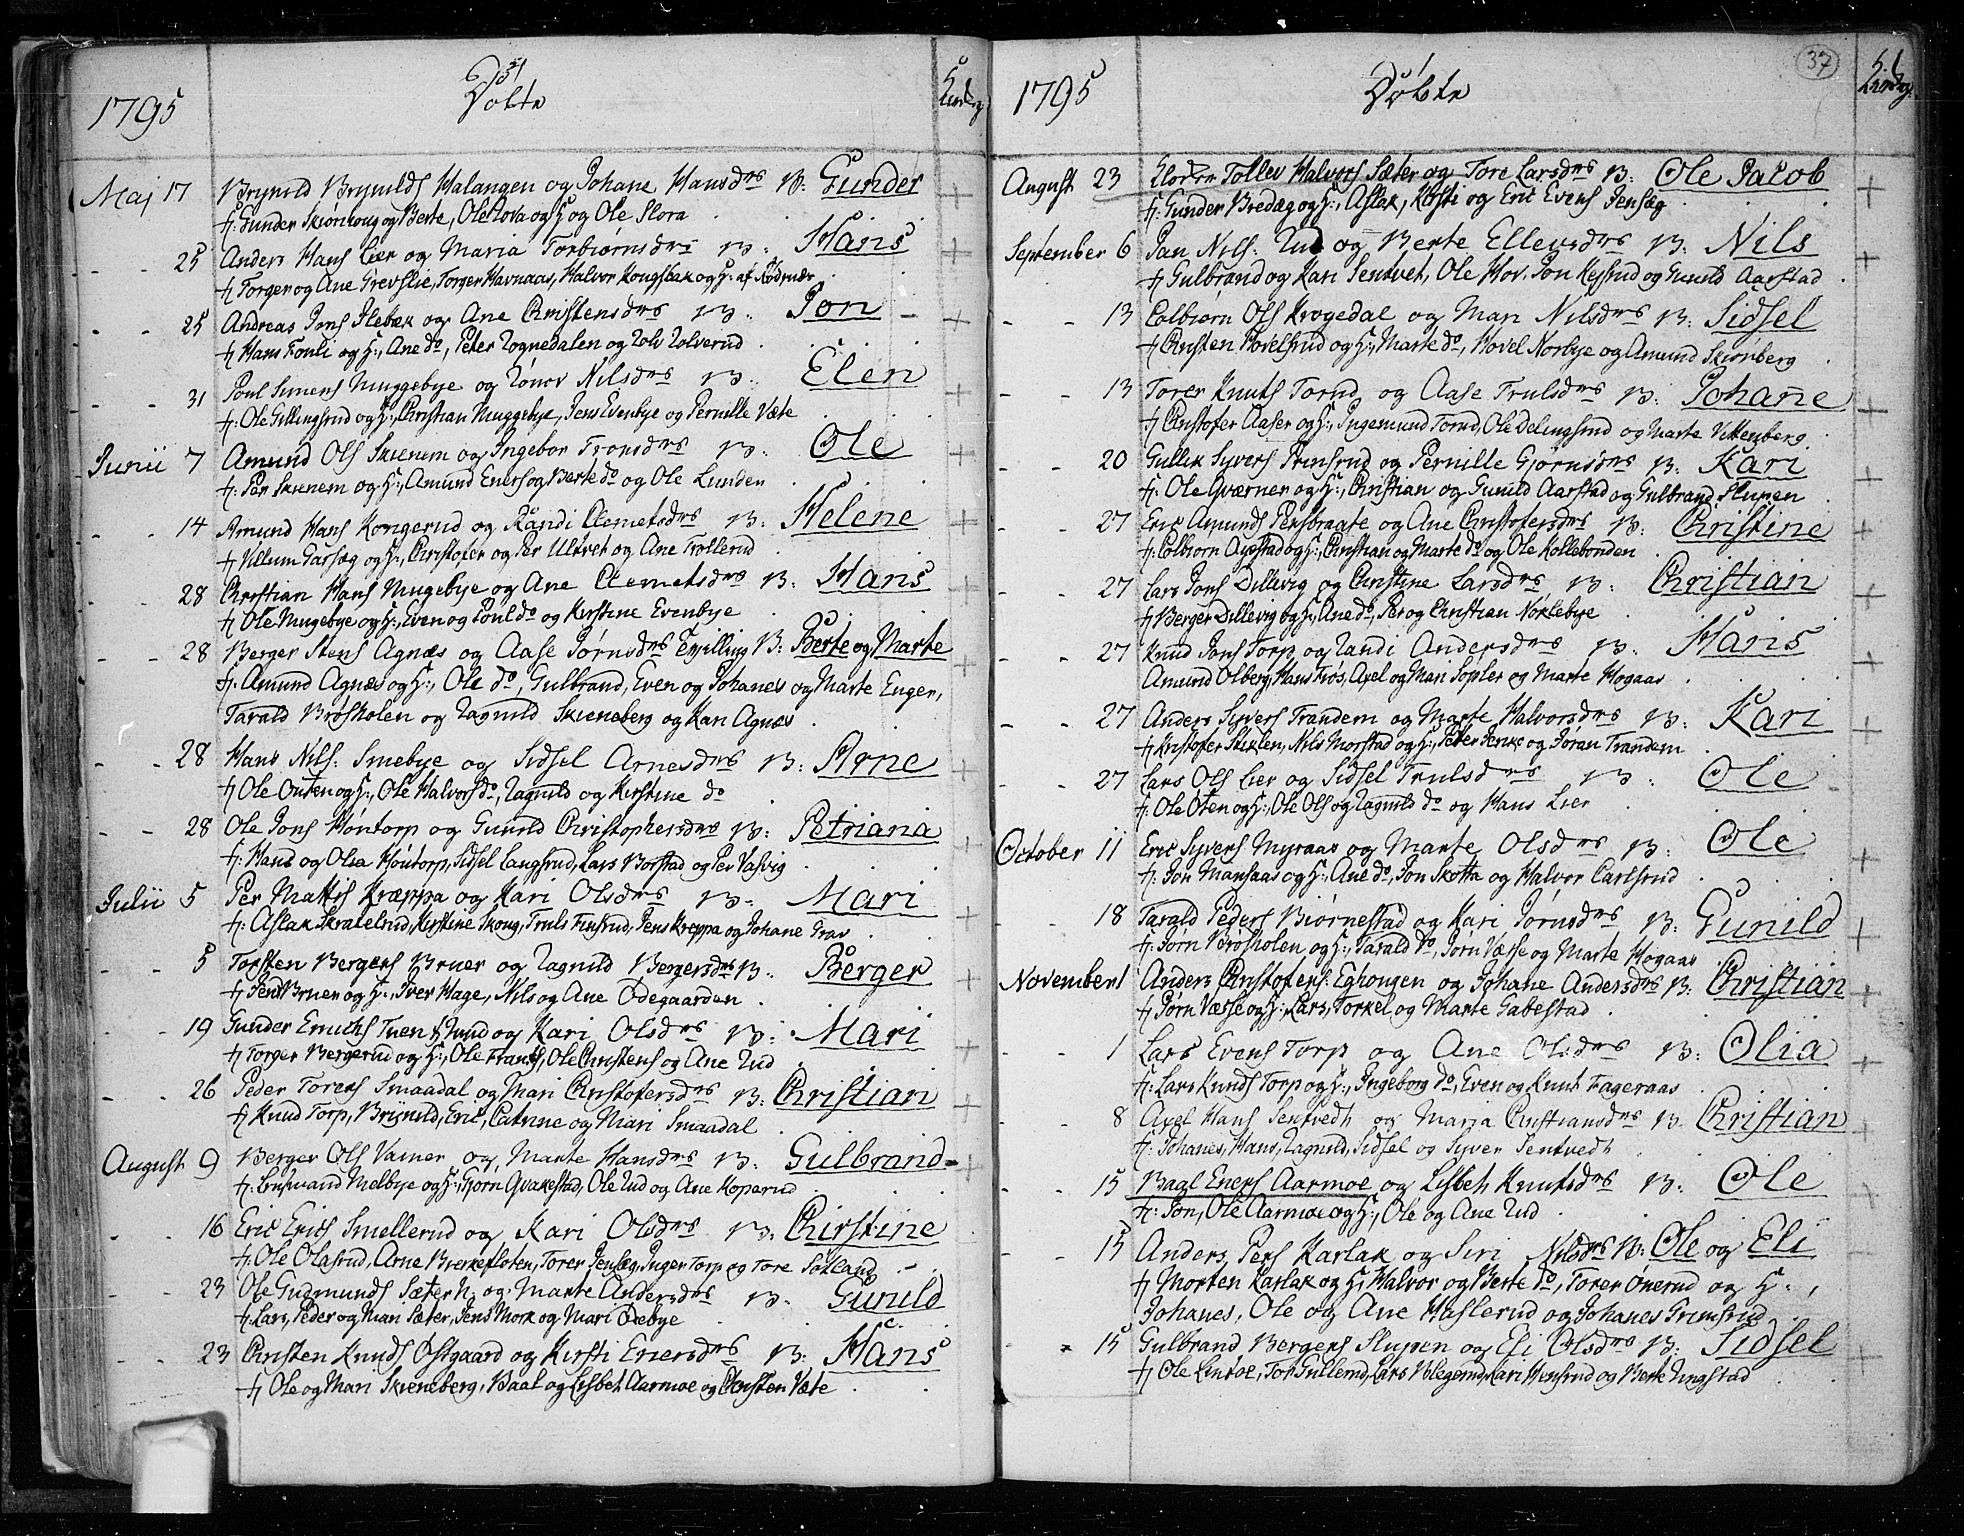 1795
Døbte
Maj 17 Brynild Brynilds Halangen og Johane Hansdrs B: Gunder
F: Gunder Skionhoug og Berte, Ole Slora og H: og Ole Slora
25 Anders Hans Lier og Maria Torbiørnsdrs B: Hans
F: Torger og Ane Grevslie, Torger Havnaas, Halvor Kougsbak og H: af Rødenæs
25 Andreas Jons Ilebæk og Ane Christensdrs B: Jon
F: Hans Fonli og H:, Ane do, Peter Rognedalen og Rolv Rolverud
31 Poul Simers Muggebye og Rønov Nilsdrs B: Elen
F: Ole Gillingsrud og H:, Christian Muggebye, Jens Evenbye og Pernille Væte
Junii 7 Amund Ols Skienem og Ingebor Tronsdrs B: Ole
F: Per Skienem og H:, Amund Eners og Berte do og Ole Lunden
14 Amund Hans Kongerud og Randi Clemetsdrs B: Helene
F: Villum Garsæg og H:, Christofer og Per Ultvet og Ane Trollerud
28 Christian Hans Mugebye og Ane Clemetsdrs B: Hans
F: Ole Mugebye og H:, Even og Poul do og Kirstine Evenbye
28 Berger Stens Agnæs og Aase Jørnsdrs Tvilling B: Berte og Marte
F: Amund Agnæs og H:, Ole do, Gulbrand, Even og Johanes og Marte Enger,
Tarald Brøsholen og Ragnild Skieneberg og Kari Agnæs
28 Hans Nils: Smebye og Sidsel Arnesdrs B: Arne
F: Ole Outen og H:, Ole Halvors do, Ragnild og Kirstine do
28 Ole Jons Høntorp og Gunild Christophersdrs B: Petriana
F: Hans og Olea Høntorp, Sidsel Langsrud, Lars Borstad og Per Vasvig
Julii 5 Per Mattis Kræppa og Kari Olsdrs B: Mari
F: Aslak Skratelrud, Kirstine Skoug, Truls Finsrud, Jens Kreppa og Johane Grav
5 Torsten Bergers Bruer og Ragnild Bergersdrs B: Berger
F: Jens Bruer og H:, Iver Hage, Nils og Ane Ødegaarden
19 Gunder Emichs Tuen Hund og Kari Olsdrs B: Mari
F: Torger Bergerud og H:, Ole Frants, Ole Christens og Ane Rud
26 Peder Torers Smaadal og Mari Christofersdrs B: Christian
F: Knud Torp, Brynild, Eric, Catrine og Mari Smaadal
August 9 Berger Ols Vamer og Marte Hansdrs B: Gulbrand
F: Melbye og H:, Gjørn Qvakestad, Ole Rud og Ane Koperud
16 Eric Erics Smellerud og Kari Olsdrs B: Chirstine
F: Ole Olasrud, Arne Brekefloten, Torer Jensæg, Inger Torp og Tore Sotland
23 Ole Gudmunds Sæter N: og Marte Andersdrs B: Gunild
F: Lars, Peder og Mari Sæter, Jens Mork og Mari Odebye
23 Christen Knuds Østgaard og Kirsti Enersdrs B: Hans
F: Ole og Mari Skieneberg, Baal og Lisbet Aarmoe og Christen Væte
37
1795
Døbte
August 23 Tollev Halvors Sæter og Tore Larsdrs B: Ole Jacob
F: Gunder Bredæg og H:, Aslak, Kirsti og Eric Evens Jensæg
September 6 Jan Nils: Rud og Berte Ellevsdrs B: Nils
F: Gulbrand og Kari Sentvet, Ole Hov. Jon Kessrud og Gunild Aarstad
13 Colbiørn Ols Krogedal og Mari Nilsdrs B: Sidsel
F: Christen Hovelsrud og H:, Marte do, Hovel Norbye og Amund Skiønberg
13 Torer Knuts Torud og Aase Trulsdrs B: Johane
F: Christofer Aaser og H:, Ingemund Torud, Ole Delingsrud og Marte Vittenberg
20 Gullik Syvers Frinsrud og Pernille Gjørnsdrs B: Kari
F: Ole Qværner og H:, Christian og Gunild Aarstad og Gulbrand Slupen
27 Eric Amunds Persbraate og Ane Christofersdrs B: Christine
F: Colbiorn Agestad og H:, Christian og Marte do og Ole Kollebonden
27 Lars Jons Dillevig og Christine Larsdrs B: Christian
F: Berger Dillevig og H:, Ane do, Per og Christian Noklebye
27 Knud Jons Torp og Randi Andersdrs B: Hans
Amund Olberg, Hans Frøs, Axel og Mari Sopler og Marte Hogaas
27 Anders Syvers Trandem og Marte Halvorsdrs B: Kari
F: Kristofer Stiklen, Nils Morstad og H:, Peter Jenke og Jøran Trandem
27 Lars Ols Lier og Sidsel Trulsdrs B: Ole
F: Ole Oten og H:, Ole Ols og Ragnild do og Hans Lier
October 11 Eric Syvers Myraas og Marte Olsdrs B: Ole
F: Jon Mansaas og H:, Ane do, Jon Skotta og Halvor Carlsrud
18 Tarald Peders Biørnestad og Kari Jørnsdrs B: Gunild
F: Jørn Brøsholen og H:, Tarald do, Jørn Væsse og Marte Hogaas
November 1 Anders Christofers: Eghougen og Johane Andersdrs B: Christian
F: Jørn Væsse og H: Lars, Torkel og Marte Gabestad
1 Lars Evens Torp og Ane Olsdrs B: Olia
F: Lars Knuds Torp og H:, Ingeborg do, Even og Knut Fageraas
8 Axel Hans Sentvedt og Maria Christiansdrs B: Christian
F: Johanes, Hans, Ragnild, Sidsel og Syver Sentvedt
15 Baal Eners Aarmoe og Lisbeh Knutsdrs B: Ole
F: Jon, Ole Aarmoe og H:, Ole og Ane Rud
15 Anders Pers Karlak og Siri Nilsdrs B: Ole og Eli
F: Morten Karlak og H, Halvor og Berte do, Torer Ønerud og H:,
Johanes, Ole og Ane Haslerud og Johanes Grimsrud
15 Gulbrand Bergers Slupen og Eli Olsdrs B: Sidsel
F: Ole Lintoe, Tor Gullerud, Lars Volegerud, Kari Hensrud og Berte Ringstad